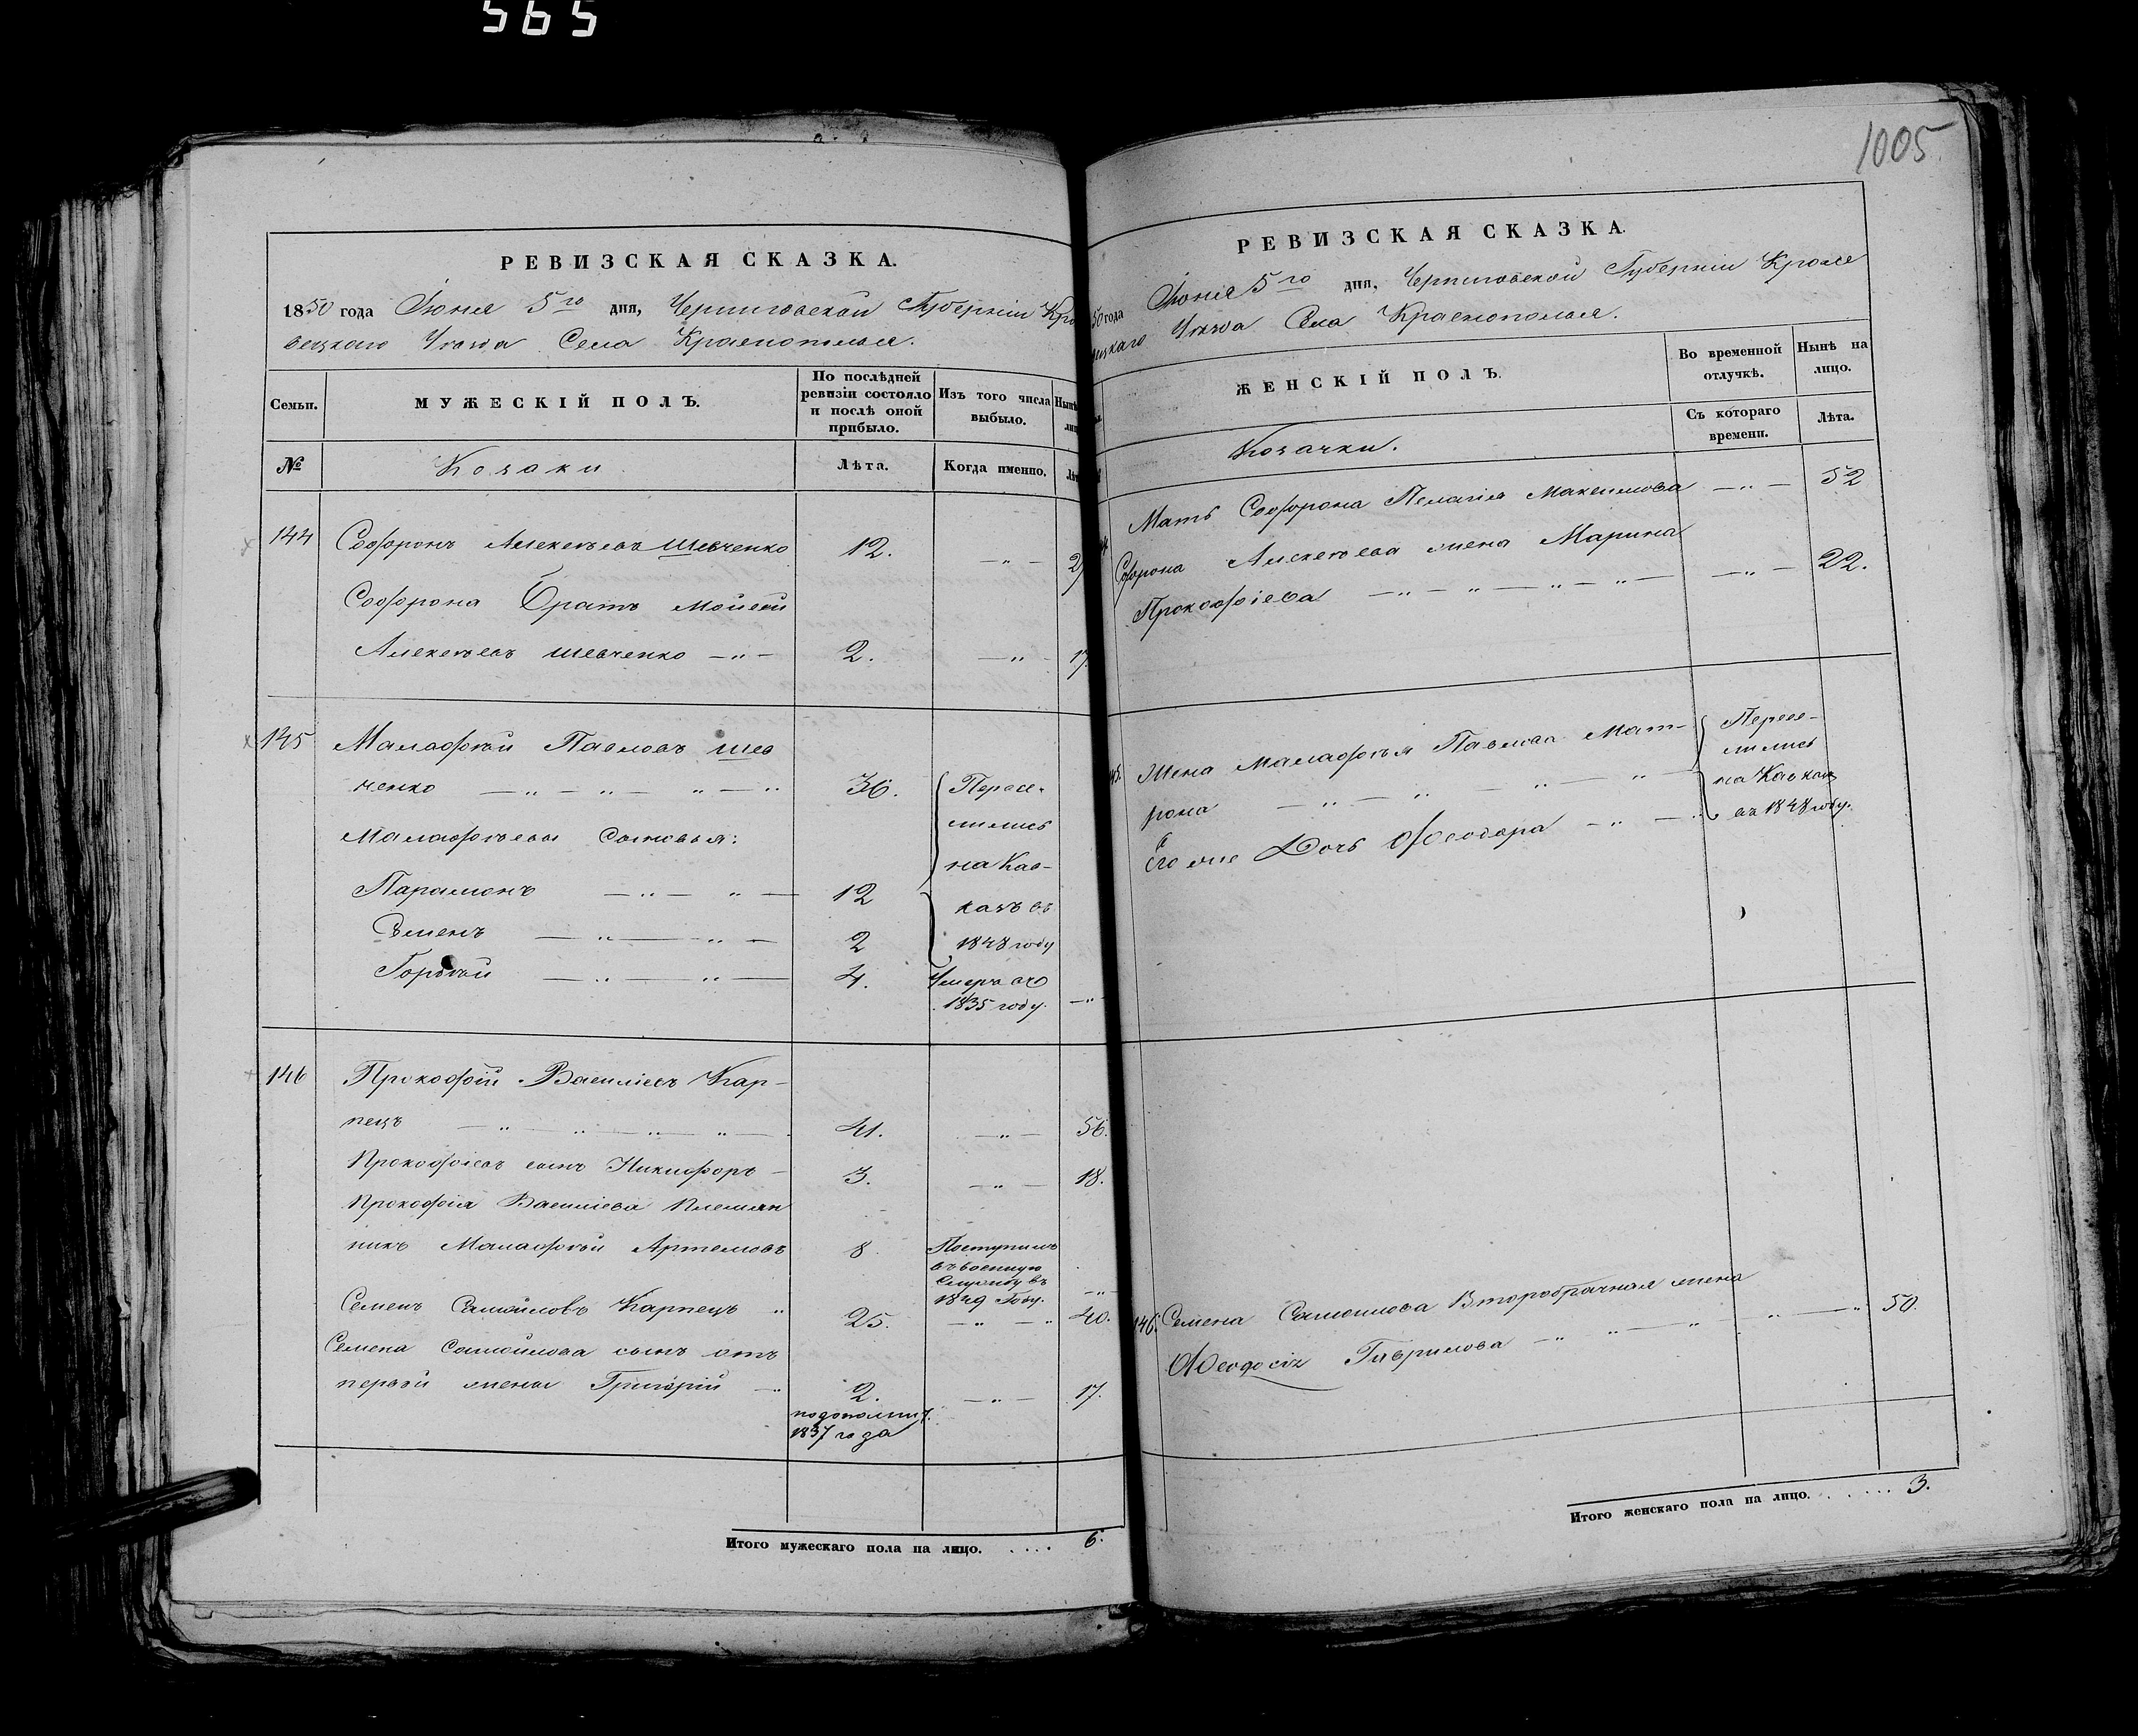 565
РЕВИЗСКАЯ СКАЗКА.
1850 года Іюня 5го дня, Черниговской Губерніи Кро
вецкаго Уѣзда Села Краснополья.
Семьи.
МУЖЕСКІЙ ПОЛЪ.
По послѣдней ревизіи состояло и послѣ оной прибыло.
Изъ того числа выбыло.
Нынѣ
№
Козаки
Лѣта.
Когда именно.
144 Софронъ Алексѣевъ Шевченко 12. — " — 27
Софрона Братъ Мойсей
Алексѣевъ Шевченко — " — 2. — " — 17
145 Малафѣй Павловъ Шев
ченко — " — " — " — " 36. Пересе-
лились
Малафѣевы Сыновья:
на Кав-
Парамонъ — " — " — 12
казъ въ
Семенъ — " — " — 2
1848 году
Гордѣй — " — " — 4. Умеръ въ
1835 году. — " —
146 Прокофій Василіевъ Кар-
пецъ — " — " — " — " — 41. — " — 56.
Прокофіевъ сынъ Никифоръ — 3. — " — 18.
Прокофія Василіева Племян
никъ Малафѣй Артемовъ 8. Поступилъ
въ военную
Службу въ
1849 Году. — " —
Семенъ Самойловъ Карпецъ " 25. — " — " 40.
Семена Самойлова сынъ отъ
первой жены Григорій — " 2. — " — 17.
по дополнит.
1837 года
Итого мужескаго пола на лицо. . . . . 6.
1005
РЕВИЗСКАЯ СКАЗКА.
50 года Іюня 5го дня, Черниговской Губерніи Кроле
вецкаго Уѣзда Села Краснополья.
ЖЕНСКІЙ ПОЛЪ.
Во временной отлучкѣ.
Нынѣ на лицо.
Съ котораго времени.
Лѣта.
Козачки.
Мать Софрона Пелагія Максимова — " — 52
Софрона Алексѣева жена Марина
Прокофіева — " — " — " — " — — " — 22.
Жена Малафѣя Павлова Мат- Пересе-
лились
рона — " — " — " — " на Кавказъ
Его же Дочь Феодора — " — въ 1848 году.
146. Семена Самоилова Второбрачная жена
Феодосія Гаврилова — " — " — " — " — " 50.
Итого женскаго пола на лицо. . . . . . 3.